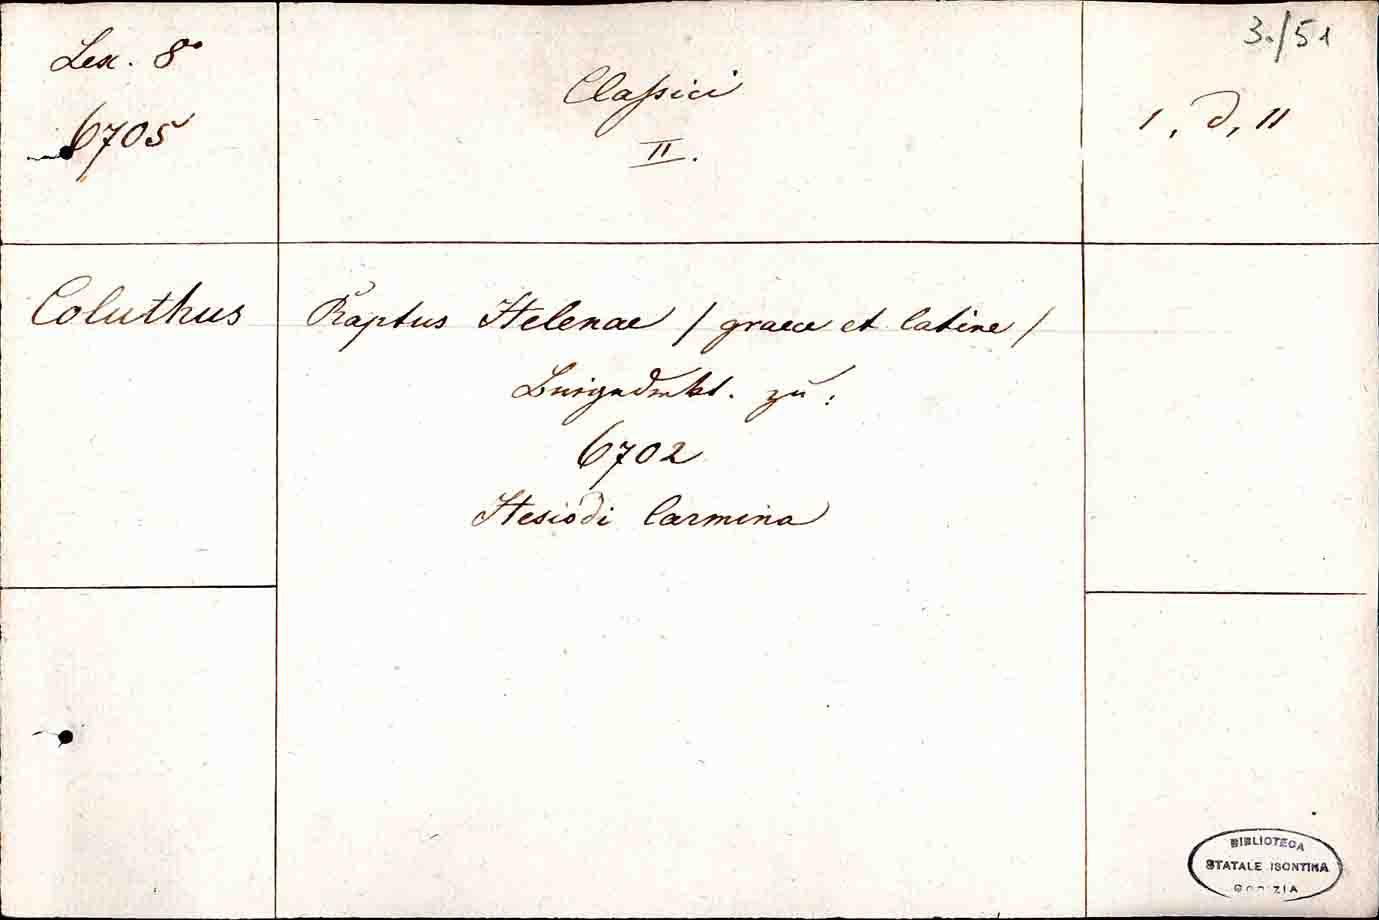 3./51
Lex. 8°
6705
Claſsici
II.
1, d, 11
Coluthus
Raptus Helenae / graece et latine /
Beigedrukt. zu:
6702
Hesiodi Carmina
BIBLIOTECA
STATALE ISONTINA
GORIZIA